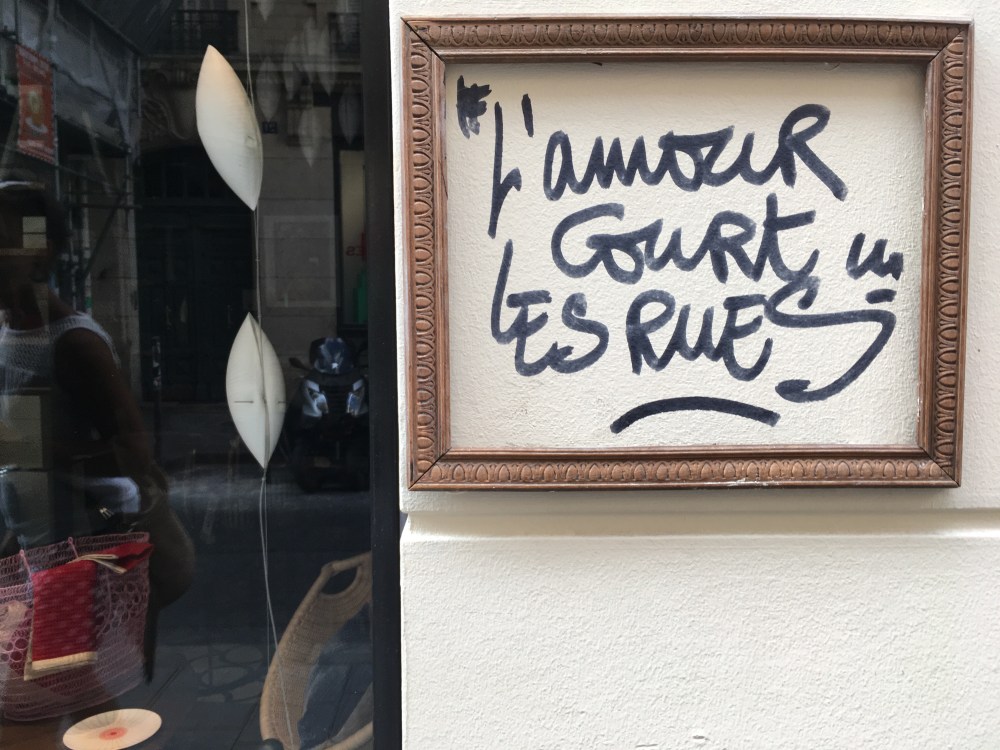 "L'amour
court
les rues"